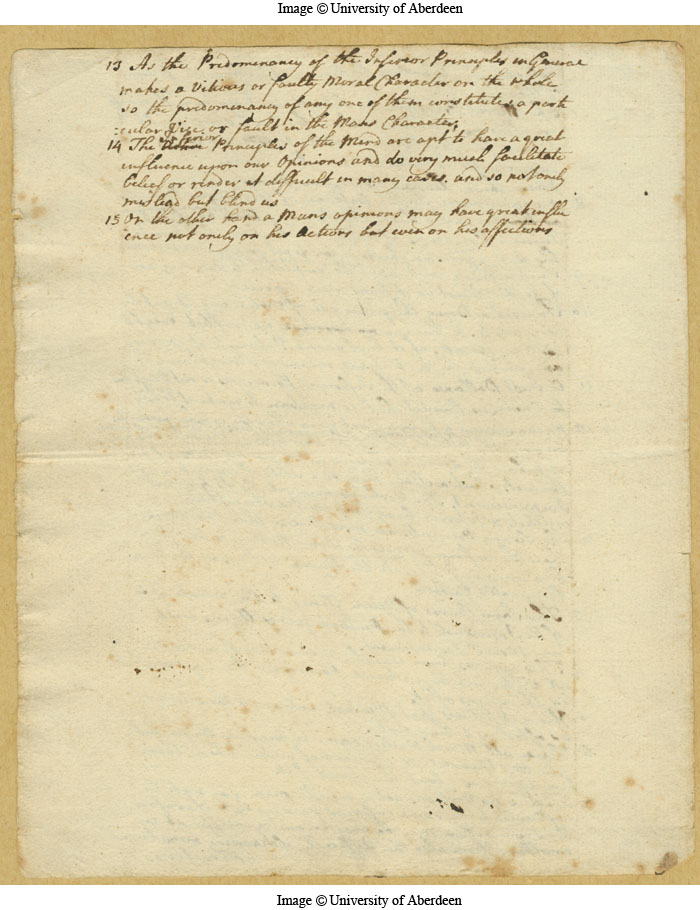 Image © University of Aberdeen
13 As the Predominancy of the Inferior Principles in General
makes a Vitious or faulty Moral Character on the whole,
so the predominancy of any one of them constitutes a parti
cular Vice or fault in the Mans Character.
inferior
14 The Active Principles of the Mind are apt to have a great
influence upon our Opinions and do very much facilitate
belief or render it difficult in many cases. and so not only
mislead but blind us
15 On the other hand a Mans opinions may have great influ
ence not onely on his Actions but even on his affections
Image © University of Aberdeen